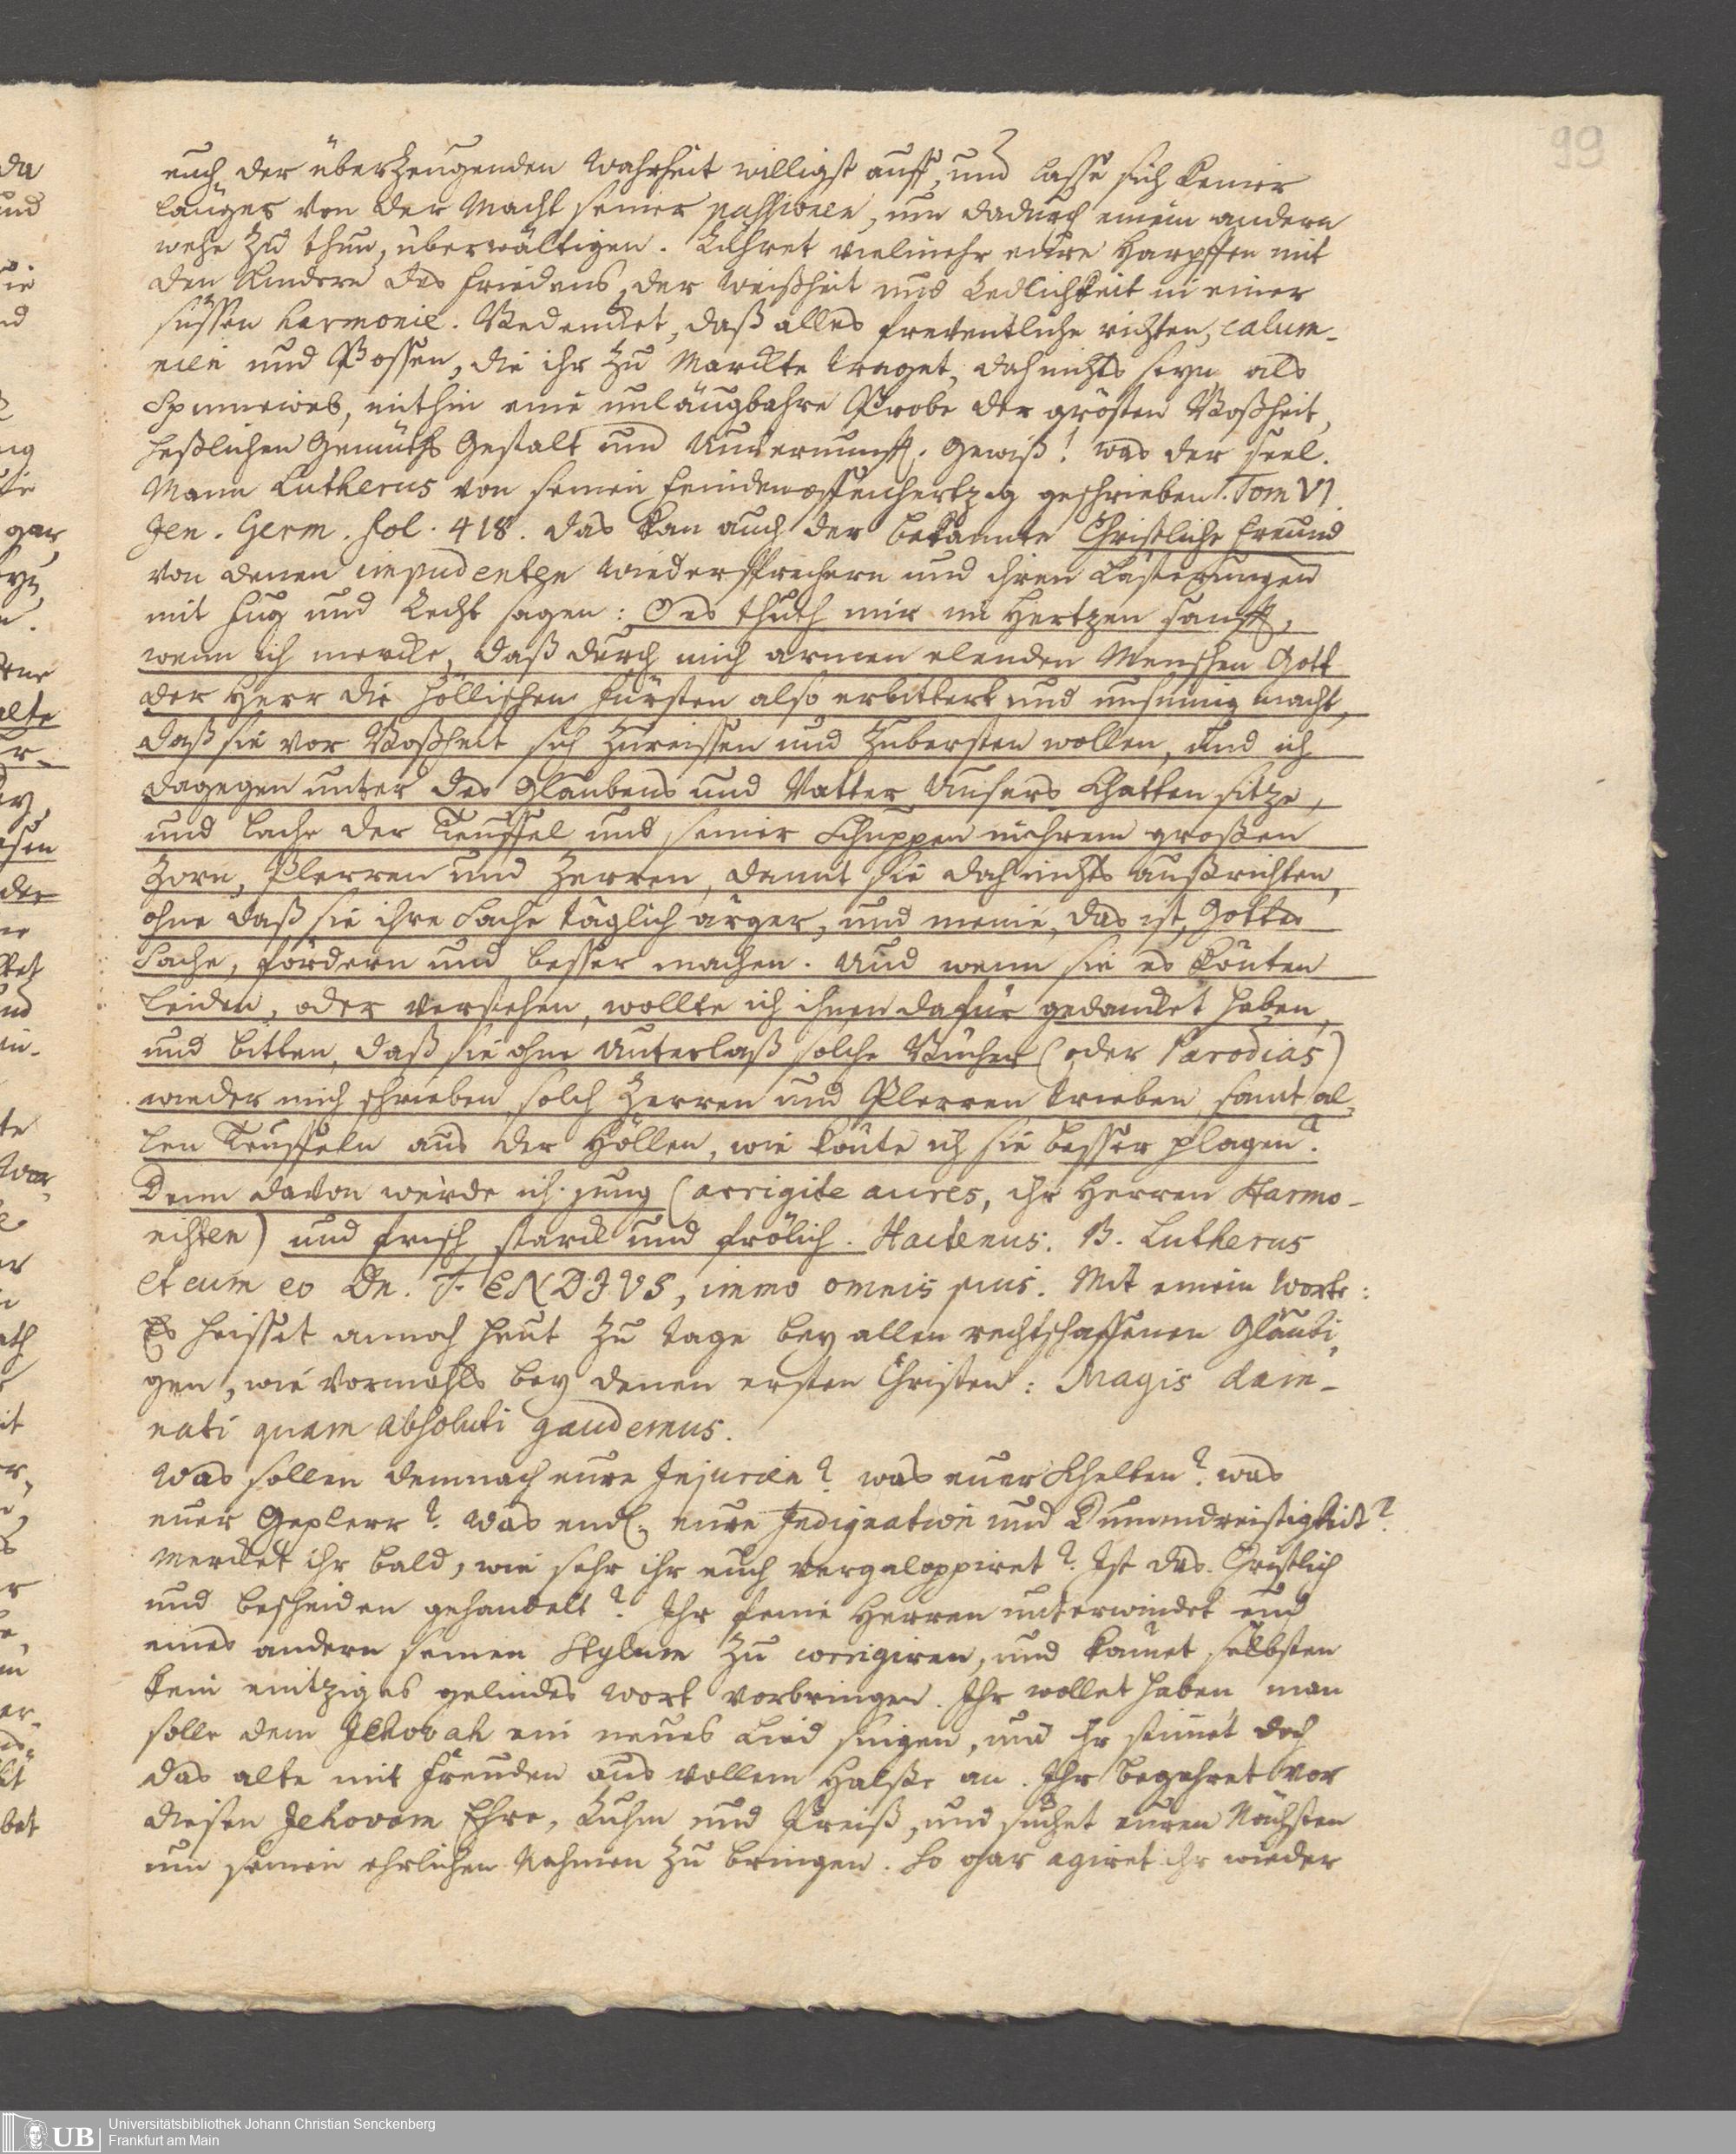 99
euch der überzeugenden Wahrheit willigst auff, und lasse sich keiner
länger von der Macht seiner passionen, um dadurch einem andern
wehe zu thun, überwältigen. Rühret vielmehr eure Harpffen mit
den Kindern des Friedens, der Weißheit und Redlichkeit in einer
süssen harmonie. Bedencket, daß alles freventliche richten, calum-
nien und Possen, die ihr zu Marckte traget, doch nichts seyn als
Spinneweb, mithin eine unläugbahre Probe der grösten Boßheit,
heßlichen Gemüths Gestalt und Unvernunfft. Gewiß! was der seel.
Mann Lutherus von seinen Feinden offenhertzig geschrieben Tom VI.
Jen. Germ. fol. 418. das kan auch der bekannte Christliche Freund
von denen impudenten Wiedersprechern und ihren Lästerungen
mit Fug und Recht sagen: Es thuth mir im Hertzen sanfft,
wenn ich mercke, daß durch mich armen elenden Menschen Gott
der Herr die Höllischen Fürsten also erbittert und unsinnig macht,
daß sie vor Boßheit sich zureissen und zubersten wollen, und ich
dagegen unter des Glaubens und Vatter Unsers Schatten sitze,
und lache der Teuffel und seiner Schuppen in ihrem großen
Zorn, Plerren und Zerren, damit sie doch nichts außrichten,
ohne daß sie ihre Sache täglich ärger, und meine, das ist, Gottes
Sache, fördern und besser machen. Und wenn sie es könten
leiden, oder verstehen, wollte ich ihnen dafür gedancket haben,
und bitten, daß sie ohne Unterlaß solche Bücher (oder Parodias)
wieder mich schrieben, solch Zerren und Plerren trieben, samt al-
len Teuffeln aus der Höllen, wie könte ich sie besser plagen?
Denn davon werde ich jung (arrigite aures, ihr Herren Harmo-
nisten) und frisch, starck und frölich. Hactenus B. Lutherus
et cum eo Dn. T. ENDIVS, immo omnis pius. Mit einem Worte:
Es heisset annoch heut zu tage bey allen rechtschaffenen Gläubi-
gen, wie vormahls bey denen ersten Christen: Magis dam-
nati quam absoluti gaudemus.
Was sollen demnach eure Injurien? was euer Schelten? was
euer Geplerr? was endl. eure Indignation und Dummdreistigkeit?
Mercket ihr bald, wie sehr ihr euch vergaloppiret? Ist das Christlich
und bescheiden gehandelt? Ihr feine Herren unterwindet euch
eines andern seinen Stylum zu corrigiren, und könnet selbsten
kein eintziges gelindes Wort vorbringen. Ihr wollet haben man
solle dem Jehovah ein neues Lied singen, und ihr stimmet doch
das alte mit Freuden aus vollem Halße an. Ihr begehret vor
diesen Jehovam Ehre, Ruhm und Preiß, und suchet euren Nächsten
um seinen ehrlichen Nahmen zu bringen. So gar agiret ihr wieder
UB Universitätsbibliothek Johann Christian Senckenberg
Frankfurt am Main